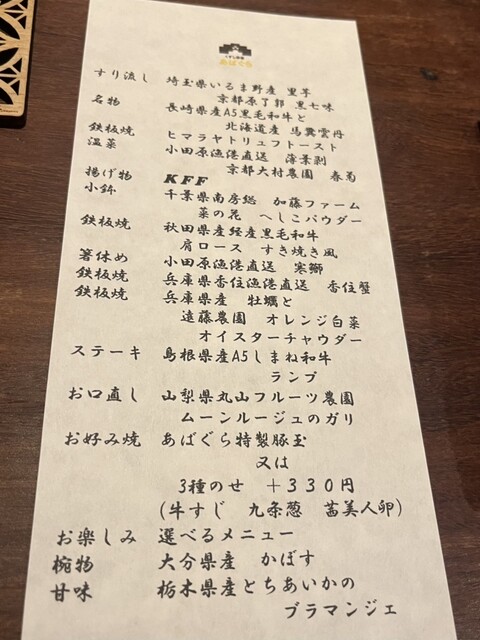 あばぐら
すり流し 埼玉県いるま野産 里芋
京都原了郭 黒七味
名物 長崎県産A5黒毛和牛と
北海道産 馬糞雲丹
鉄板焼 ヒマラヤトリュフトースト
温菜 小田原漁港直送 薄葉剥
京都大村農園 春菊
揚げ物 KFF
小鉢 千葉県南房総 加藤ファーム
菜の花 へしこパウダー
鉄板焼 秋田県産経産黒毛和牛
肩ロース すき焼き風
箸休め 小田原漁港直送 寒鰤
鉄板焼 兵庫県香住漁港直送 香住蟹
鉄板焼 兵庫県産 牡蠣と
遠藤農園 オレンジ白菜
オイスターチャウダー
ステーキ 島根県産A5しまね和牛
ランプ
お口直し 山梨県丸山フルーツ農園
ムーンルージュのガリ
お好み焼 あばぐら特製豚玉
又は
3種のせ +330円
(牛すじ 九条葱 茜美人卵)
お楽しみ 選べるメニュー
椀物 大分県産 かぼす
甘味 栃木県産とちあいかの
ブラマンジェ